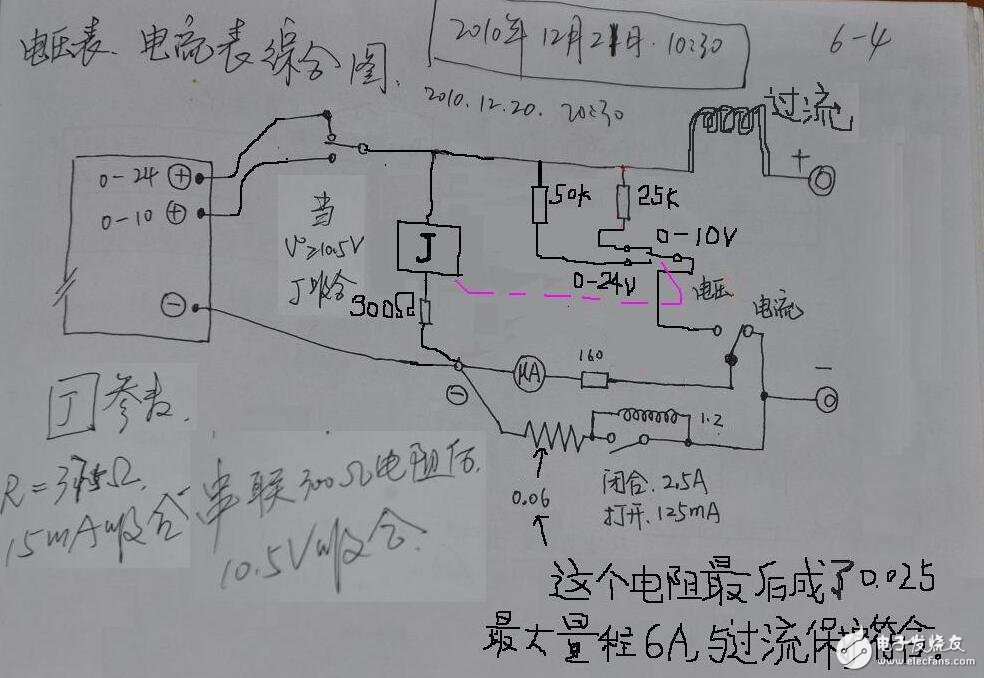 电压表、电流表综合图.
2010年12月21日.10:30
6-4
2010.12.20. 20:30
过流
+
0-24 +
0-10 +
50k
25K
当
V°≥10.5V
J吸合
J
0-10V
0-24V
电压
电流
300Ω
−
μA
160
−
−
1.2
J 参数.
R=375Ω.
15mA吸合
串联300Ω电阻后.
10.5V吸合.
0.06
闭合.2.5A
打开.125mA
这个电阻最后成了0.025
最大量程6A,与过流保护符合。
电子发烧友
www.elecfans.com